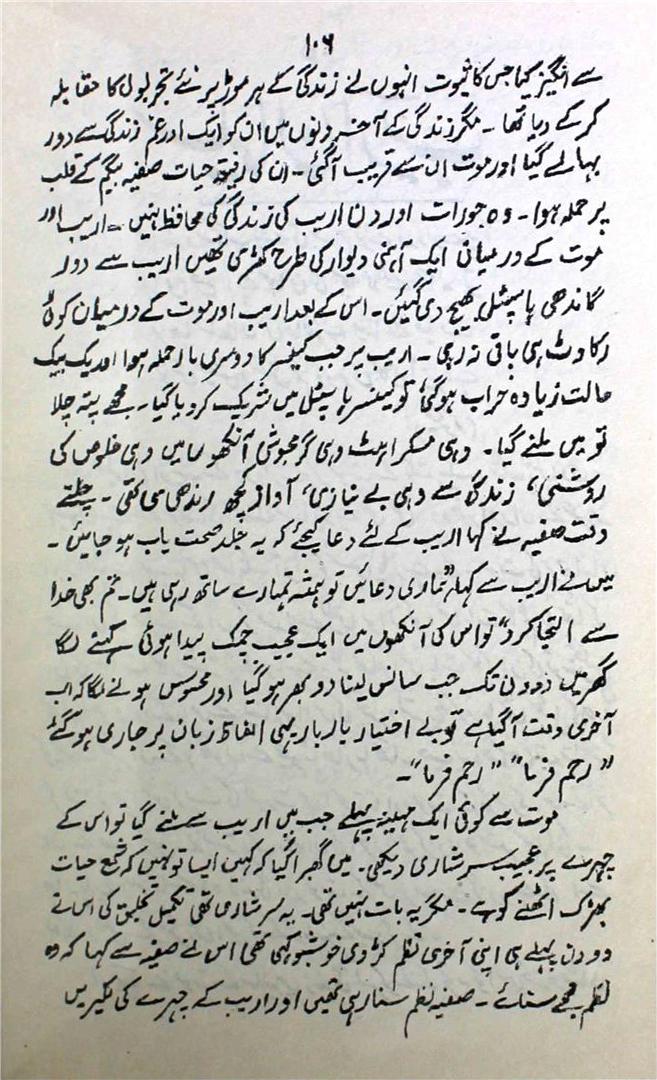 ۱۰۶
سے انگیز کیا جس کا ثبوت انہوں نے زندگی کے ہر موڑ پر نئے تجربوں کا مقابلہ
کر کے دیا تھا ۔ مگر زندگی کے آخر دنوں میں ان کو ایک اور غم زندگی سے دور
بہا لے گیا اور موت ان سے قریب آگئی ۔ ان کی رفیقہ حیات صفیہ بیگم کے قلب
پر حملہ ہوا ۔ وہ جو رات اور دن اریب کی زندگی کی محافظ تھیں ۔ اریب اور
موت کے درمیان ایک آہنی دیوار کی طرح کھڑی تھیں اریب سے دور
گاندھی ہاسپٹل بھیج دی گئیں ۔ اس کے بعد اریب اور موت کے درمیان کوئی
رکاوٹ ہی باقی نہ رہی ۔ اریب پر جب کینسر کا دوسری بار حملہ ہوا اور یک بیک
حالت زیادہ خراب ہوگئی، تو کینسر ہاسپٹل میں شریک کر دیا گیا ۔ مجھے پتہ چلا
تو میں ملنے گیا ۔ وہی مسکراہٹ وہی گرمجوشی آنکھوں میں وہی خلوص کی
روشنی، زندگی سے وہی بے نیازی، آواز کچھ رندھی سی تھی ۔ چلتے
وقت صفیہ نے کہا اریب کے لئے دعا کیجئے کہ یہ جلد صحت یاب ہو جائیں ۔
میں نے اریب سے کہا "ہماری دعائیں تو ہمیشہ تمہارے ساتھ رہی ہیں ۔ تم بھی خدا
سے التجا کرو" تو اس کی آنکھوں میں ایک عجیب چمک پیدا ہوئی کہنے لگا
گھر میں دو دن تک جب سانس لینا دوبھر ہوگیا اور محسوس ہونے لگا کہ اب
آخری وقت آگیا ہے تو بے اختیار بار بار یہی الفاظ زبان پر جاری ہوگئے
"رحم فرما" "رحم فرما" ۔
موت سے کوئی ایک مہینہ پہلے جب میں اریب سے ملنے گیا تو اس کے
چہرے پر عجیب سرشاری دیکھی ۔ میں گھبرا گیا کہ کہیں ایسا تو نہیں کہ شمع حیات
بھڑک اٹھنے کو ہے ۔ مگر یہ بات نہیں تھی ۔ یہ سرشاری تھی تکمیل تخلیق کی اس نے
دو دن پہلے ہی اپنی آخری نظم کڑوی خوشبو کہی تھی اس نے صفیہ سے کہا کہ وہ
نظم مجھے سنائے ۔ صفیہ نظم سنا رہی تھیں اور اریب کے چہرے کی لکیریں